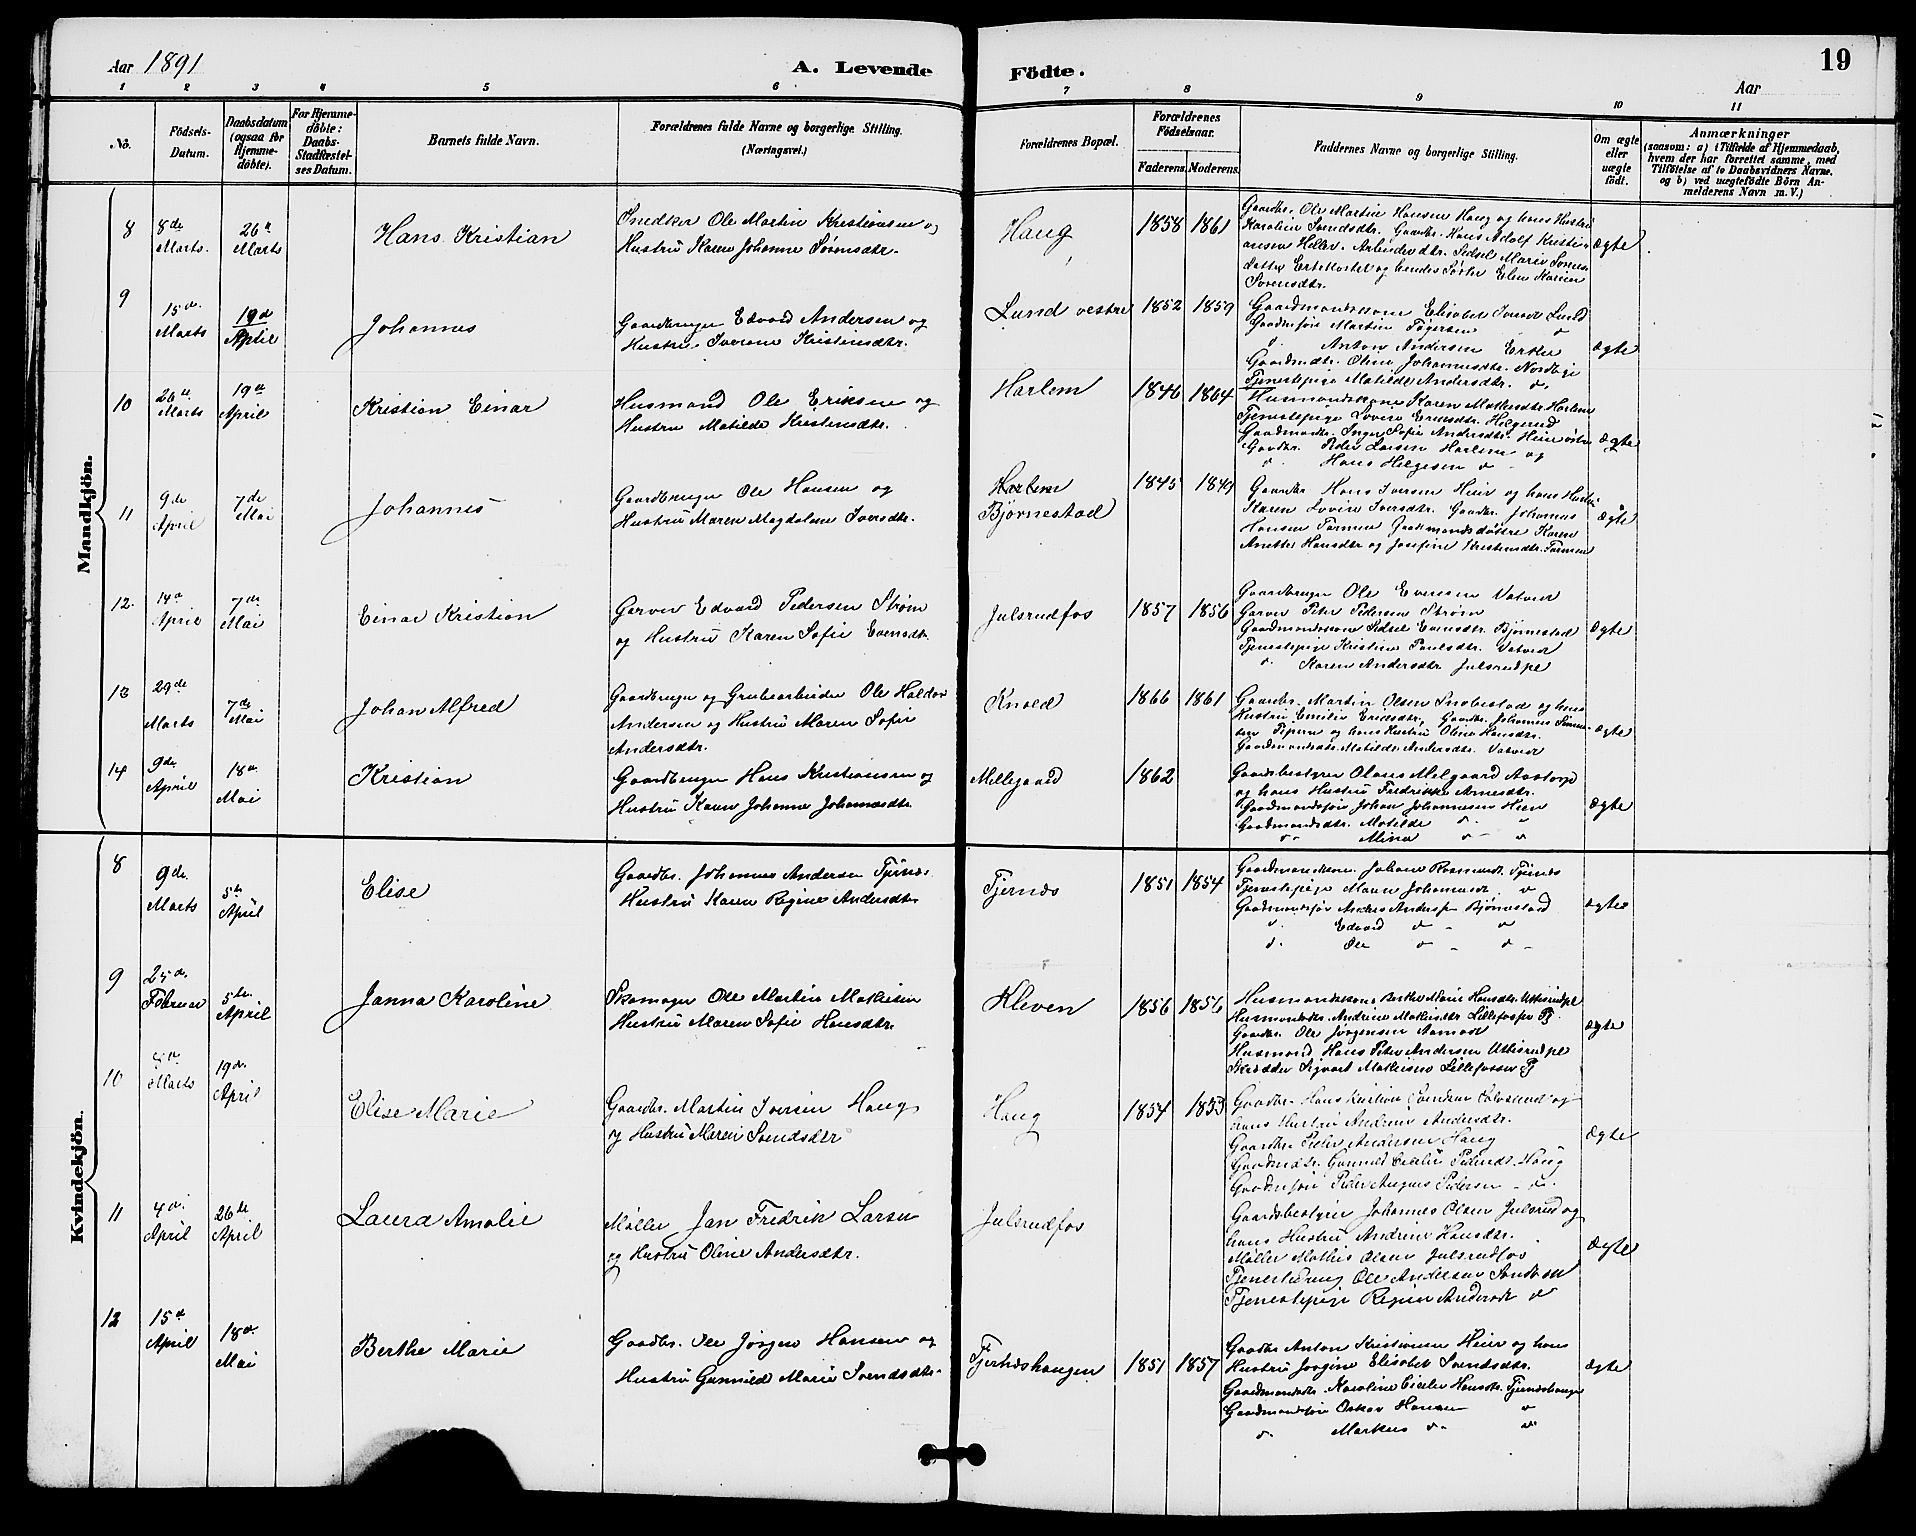 Aar 1891
A. Levende
Födte.
19
Aar
1 2 3 4 5 6 7 8 9 10 11
No.
Födsels-Datum.
Daabsdatum (ogsaa for Hjemme-döbte).
For Hjemme-döbte: Daabs-Stadfæstel-ses Datum.
Barnets fulde Navn.
Forældrenes fulde Navne og borgerlige Stilling. (Næringsvei.)
Forældrenes Bopæl.
Forældrenes Födselsaar.
Faderens. Moderens.
Faddernes Navne og borgerlige Stilling.
Om ægte eller uægte födt.
Anmærkninger
(saasom: a) i Tilfælde af Hjemmedaab, hvem der har forrettet samme, med Tilföielse af to Daabsvidners Navne. og b) ved uægtefödte Börn An-melderens Navn m. V.)
Mandkjön.
8 8de Marts. 26de Marts Hans Kristian
Snedker Ole Martin Kristiansen og
Hustru Karen Johanne Sørensdtr.
Haug 1858 1861
Gaardbr. Ole Martin Hansen Haug og hans Hustru
Karoline Svendsdtr. Gaardbr. Hans Adolf Kristi-
ansen Heller. Arbeiderdtr. Sidsel Marie Sørens-
datter og hendes Søster Elen Karine
Sørensdtr.
ægte
9 15de Marts 19de April Johannes
Gaardbruger Edvard Andersen og
Hustru Iverine Kristensdtr.
Lund vestre 1852 1859
Gaardmandskone Elisabet Iversd. Lund
Gaardmsføir Martin
d. Anton Andersen
Gaardmdtr. Oline Johannesdtr. Nordbye
Tjenestepige Matilde Andersdtr. do.
ægte
10 26de Marts 19de April Kristian Einar
Husmand Ole Eriksen og
Hustru Matilde Kristensdtr.
Harlem 1846 1864
Husmandskone Karen Mathisdtr. Harlem
Tjenestepige Lovise Eriksdtr. Helgerud
Gaardmdtr. Inger Sofie Andersdtr. Heier østre
Gaardbr. Peder Larsen Harlem og
d. Hans Helgesen do
ægte
11 9de April 7de Mai Johannes
Gaardbruger Ole Hansen og
Hustru Maren Magdalene Iversdtr.
Harlem
Bjørnestad 1845 1849
Gaardbr Hans Iversen Heier og hans Hustru
Karen Lovise Iversdtr. Gaardbr. Johannes
Hansen Tormen Gaardmandsdøttre Karen
Anette Hansdtr og Josefine Kristensdtr. Tormen
ægte
12. 14de April 7de Mai Einar Kristian
Garver Edvard Pedersen Strøm
og Hustru Karen Sofie Evensdtr.
Julsrudfos 1857 1856
Gaardbruger Ole Evensen Vatvedt
Garver Peter Pedersen Strøm
Gaardmandskone Sidsel Evensdtr. Bjørnestad
Tjenestepige Kristine Paulsdtr. Vatvedt
d. Karen Andersdtr Julsrudpl
ægte
13 29de Marts 7de Mai Johan Alfred
Gaardbruger og Grubearbeider Ole Haldor
Andersen og Hustru Maren Sofie
Andersdtr.
Knold 1866 1861
Gaardbr. Martin Olsen Snebestad og hans
Hustru Emilie Eriksdtr, Gaardbr. Johannes
og hans Hustru Oline Hansdtr.
Gaardmandsdtr. Matilde Andersdtr. Vatvedt
ægte
14 9de April 18de Mai Kristian
Gaardbruger Hans Kristiansen og
Hustru Karen Johanne Johannesdtr.
Millegaard 1862
Gaardsbestyrer Olaus Melgaard Aastorp
og hans Hustru Fredrikke Arnesdtr.
Gaardmandsføir Johan Johannesen Hien
Gaardmandsdtr. Matilde do. do
do. Mina do do
ægte
Kvindekjön.
8 9de Marts 5te April Elise
Gaardbr. Johannes Andersen Tjernes
Hustru Karen Regine Andersdtr
Tjernæs 1851 1854
Gaardmandskone Johanne Rasmusdt. Tjernes
Tjenestepige Maren Johannesdt. do
Gaardmandsføir Anders Andersen Bjørnestad
d. Edvard do - do
d. Ole do - do -
ægte
9 25de Februar 5te April Janna Karoline
Skomager Ole Martin Mathisen
Hustru Maren Sofie Hansdtr.
Kleven 1856 1856
Husmandskone Berthe Marie Hansdtr. Uttisrudpl
Husmandsdtr. Andrine Mathisdtr Lillefospl
Gaardbr. Ole Jørgensen Aamodt
Husmand Hans Peter Andersen Uttisrudpl
Skrædder Sigvart Mathisen Lillefossen
ægte
10 Marts 19de April Elise Marie
Gaardbr. Martin Iversen Haug
og Hustru Maren Svendsdtr
Haug 1854 1853
Gaardbr Hans Kristian Svendsen og
hans Hustru Andrine Andersdtr.
Gaardbr Peder Andersen Haug
Gaardmdtr. Gunnild Cicilie Pedersdt. Haug
Gaardmføir Peder August Pedersen - do.
ægte
11 4de April 26de April Laura Amalie
Møller Jan Fredrik Larsen
og Hustru Oline Andersdtr.
Julsrudfos
Gaardsbestyrer Johannes Olsen Julsrud og
hans Hustru Andrine Hansdtr.
Møller Mathis Olsen Julsrudfos
Tjenestedreng Ole Andersen
Tjenestepige Regine Andersdt do
ægte
12 15de April 18de Mai Berthe Marie
Gaardbr. Ole Jørgen Hansen og
Hustru Gunnild Marie Svendsdtr.
Tjernæshaugen 1851 1857
Gaardbr Anton Kristiansen Heier og hans
Hustru Jørgine Elisabet Svendsdtr.
Gaardmandsdtr. Karoline Cicilie Hansdtr. Tjernæshaugen
Gaardmandsføir Oskar Hansen do
d. Markus do do
ægte